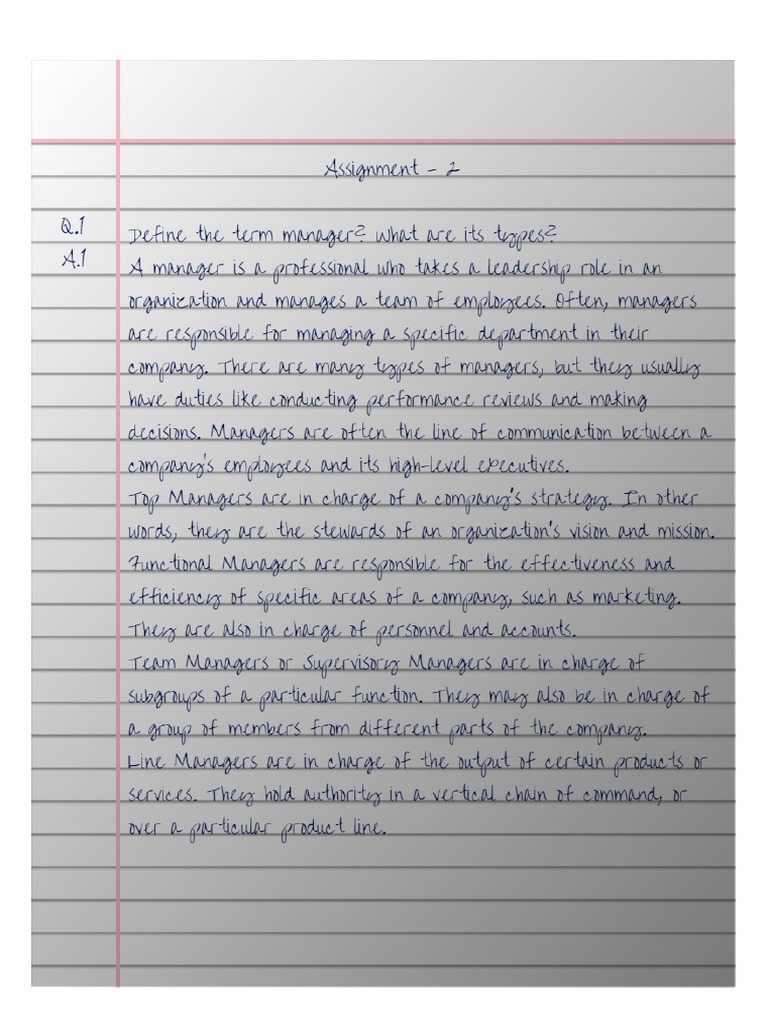 Assignment - 2
Q.1 Define the term manager? What are its types?
A.1 A manager is a professional who takes a leadership role in an
organization and manages a team of employees. Often, managers
are responsible for managing a specific department in their
company. There are many types of managers, but they usually
have duties like conducting performance reviews and making
decisions. Managers are often the line of communication between a
company's employees and its high-level executives.
Top Managers are in charge of a company's strategy. In other
words, they are the stewards of an organization's vision and mission.
Functional Managers are responsible for the effectiveness and
efficiency of specific areas of a company, such as marketing.
They are also in charge of personnel and accounts.
Team Managers or Supervisory Managers are in charge of
subgroups of a particular function. They may also be in charge of
a group of members from different parts of the company.
Line Managers are in charge of the output of certain products or
services. They hold authority in a vertical chain of command, or
over a particular product line.